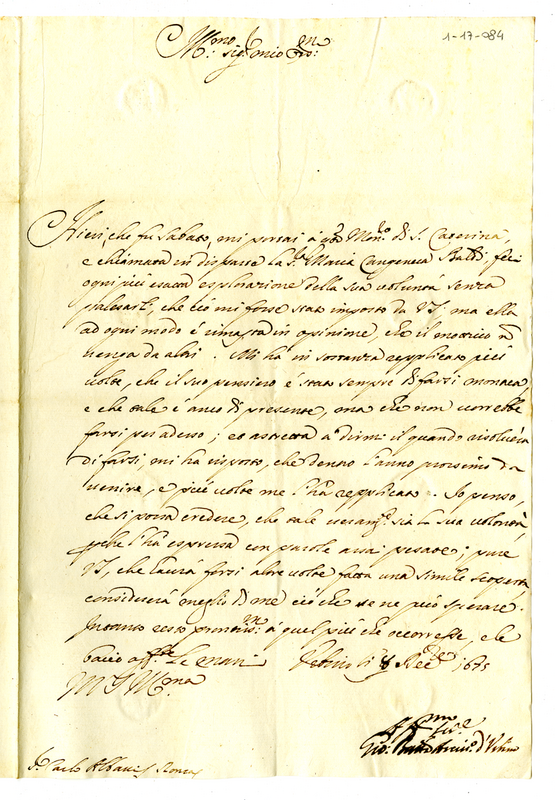 1-17-084
M.mo Sig.
Hieri, che fu sabato, mi portai à Mon.ro di S. Caterina,
e chiamata in disparte la S.ra Maria Baldi, feci
ogni più esatta esplorazione della sua voluntà senza
palesarli, che ciò mi fosse stato imposto da VS, ma ella
ad ogni modo è rimasta in opinione, che il motivo
venga da altri. Mi hà in sostanza repplicato più
volte, che il suo pensiero è stato sempre di farsi monaca,
e che tale è anco di presente, ma che non vorrebbe
farsi per adesso; et astretta a dirmi il quando risolverà
di farsi, mi ha risposto, che dentro l'anno prossimo da
venire, e più volte me l'ha repplicato. Io penso,
che si possa credere, che tale sia la sua volontà,
perche l'ha espressa con parole assai pesate; pure
VS, che haurà forsi altre volte fatta una simile scoperta,
considererà meglio di me ciò che se ne può sperare.
Intanto resto a quel più che occorresse, e le
bacio aff.te le mani Urbino li 8 1675
Carlo Albani Roma
d'Urbino